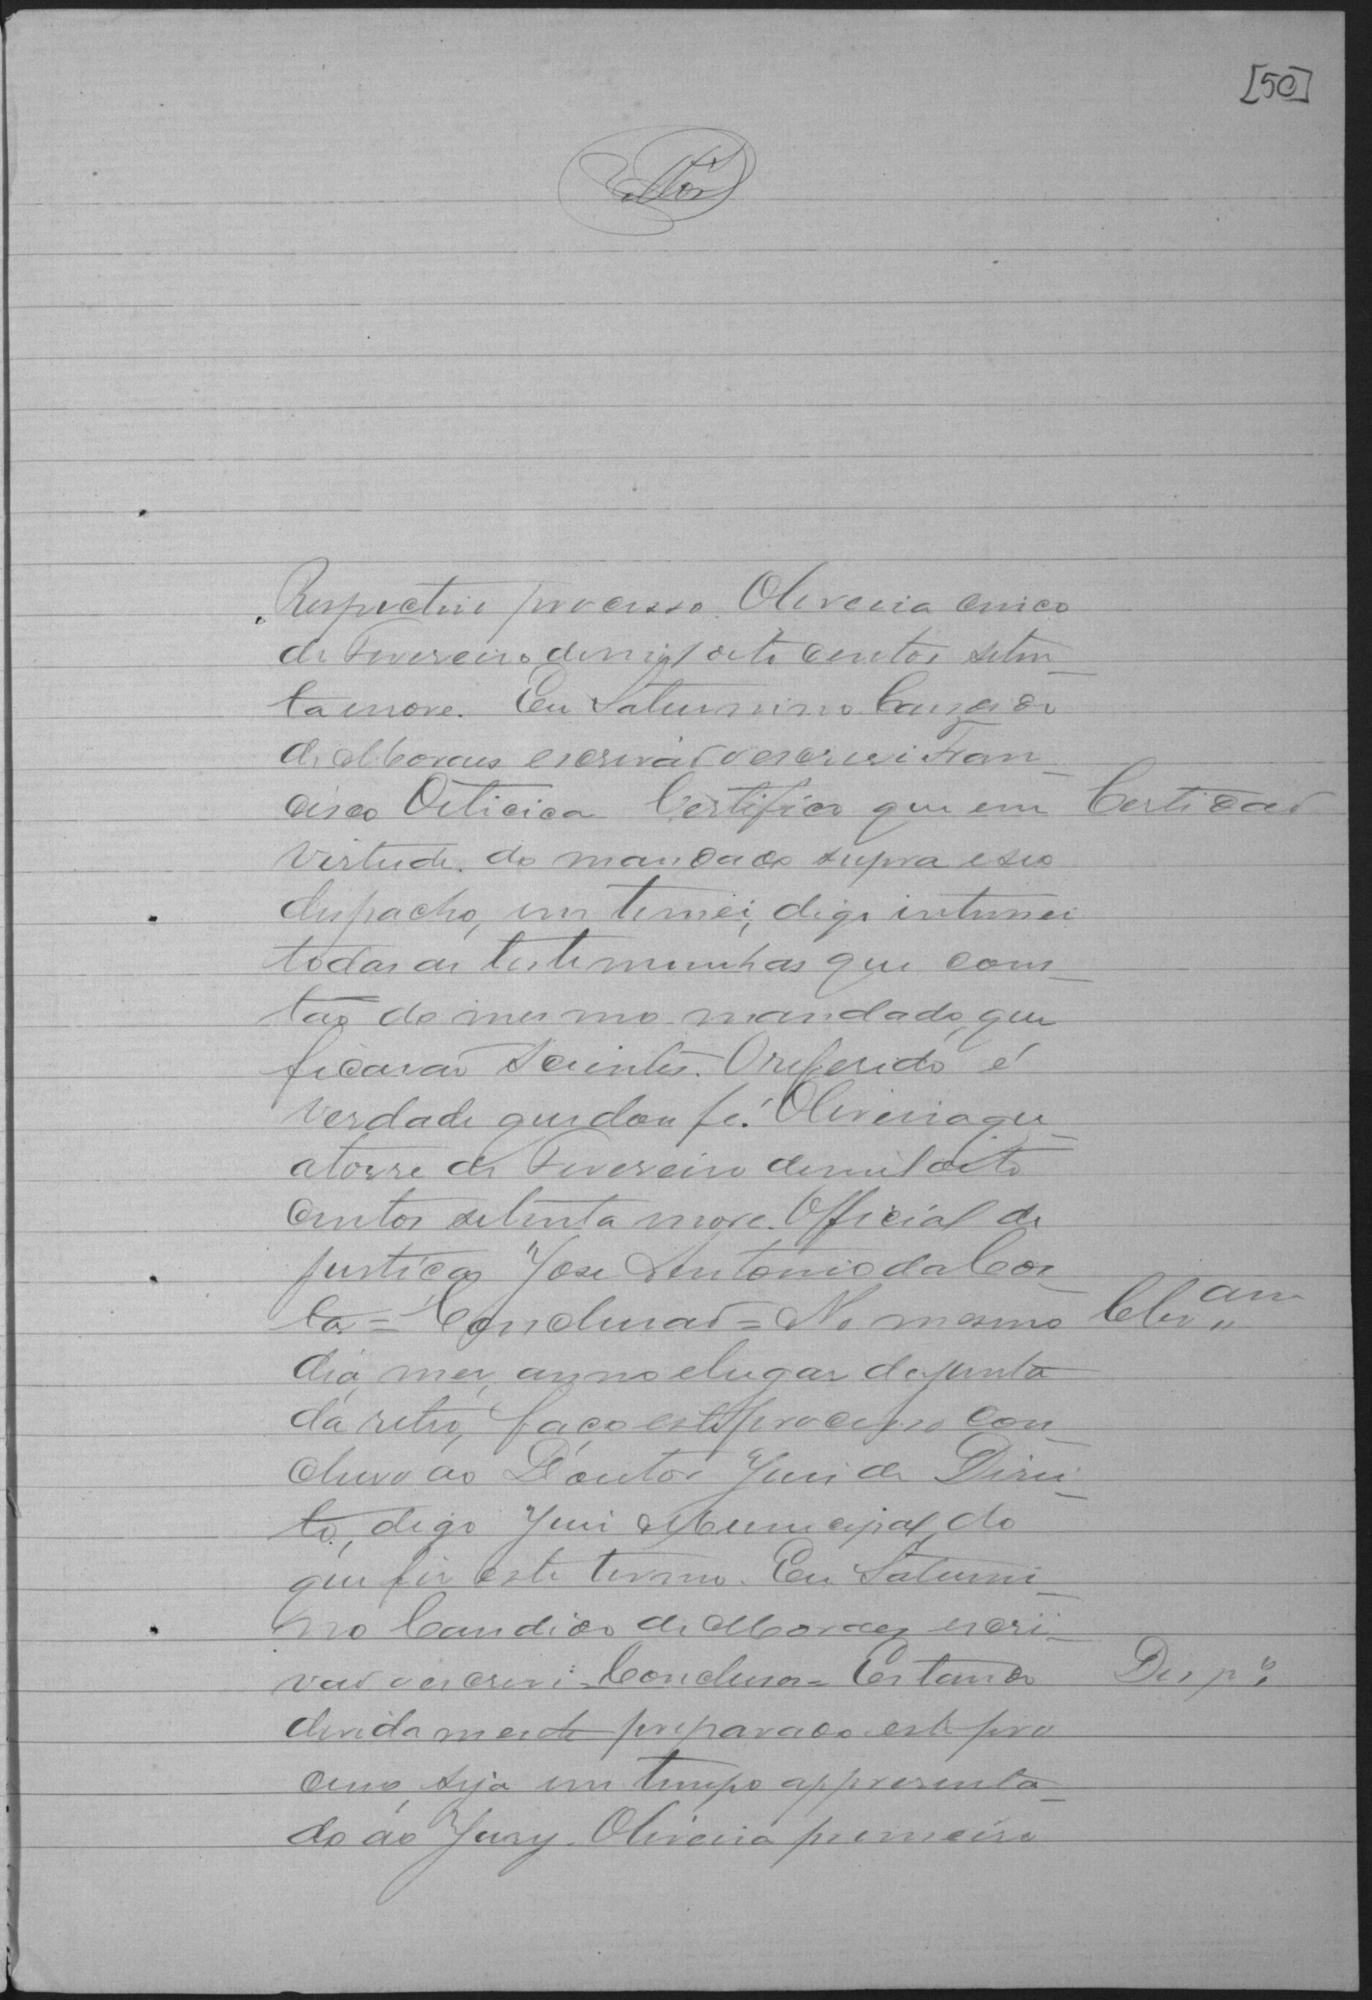 [50]
Respectivo processo. Oliveira cinco
de Fevereiro de mil oito centos seten-
ta nove. Eu Saturnino Candido
de Moraes escrivão o escrevi Fran-
cisco Oiticica Certifico que em
Certidão
virtude do mandado supra e seo
despacho, em timei, digo intimei
todas as testemunhas que cons-
tão do mesmo mandado, que
ficarão scientes. O referido é
verdade que dou fé. Oliveira qu-
atorse de Fevereiro de mil oito
centos setenta nove. Official de
justiça José Antonio da Cos-
ta = Conclusão = No mesmo
Clsam
dia, mes, anno e lugar da junta-
da retro, faço este processo con-
cluso ao Doutor Juis de Direi-
to, digo Juis Municipal, do
que fis este termo. Eu Saturni-
no Candido de Moraes escri-
vão o escrevi = Conclusos = Estando
Desp.o
devidamente preparado este pro
cesso, seja em tempo appresenta-
do ao Jury. Oliveira primeiro